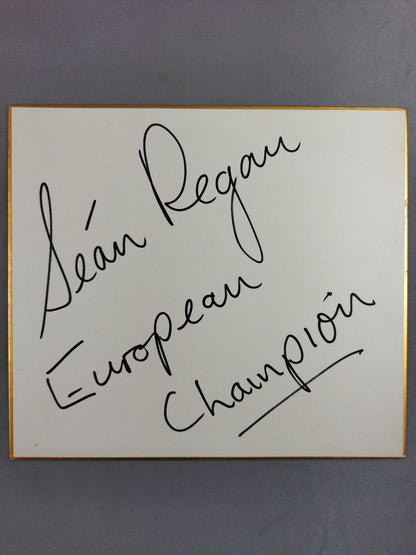 Seán Regan
European
Champion